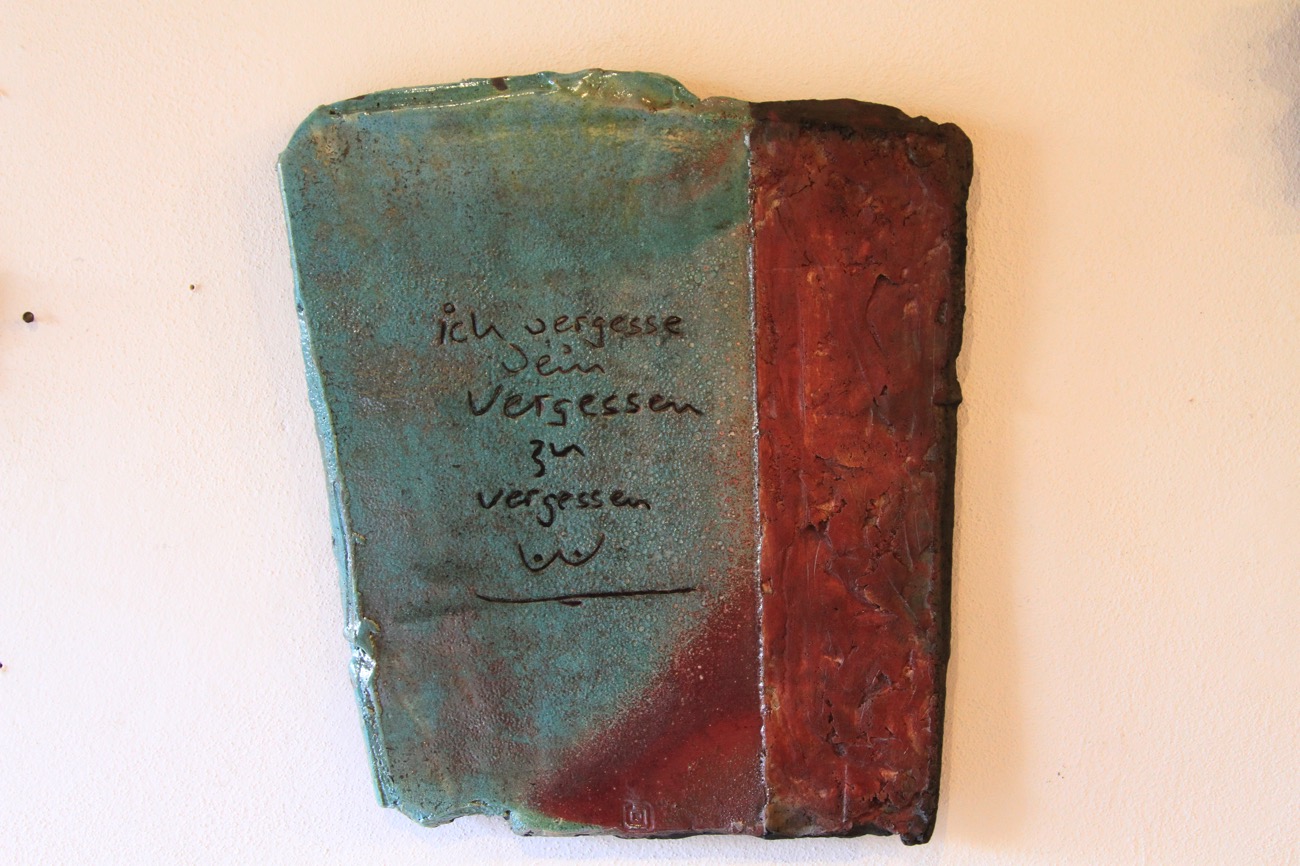 ich vergesse
dein
Vergessen
zu
vergessen